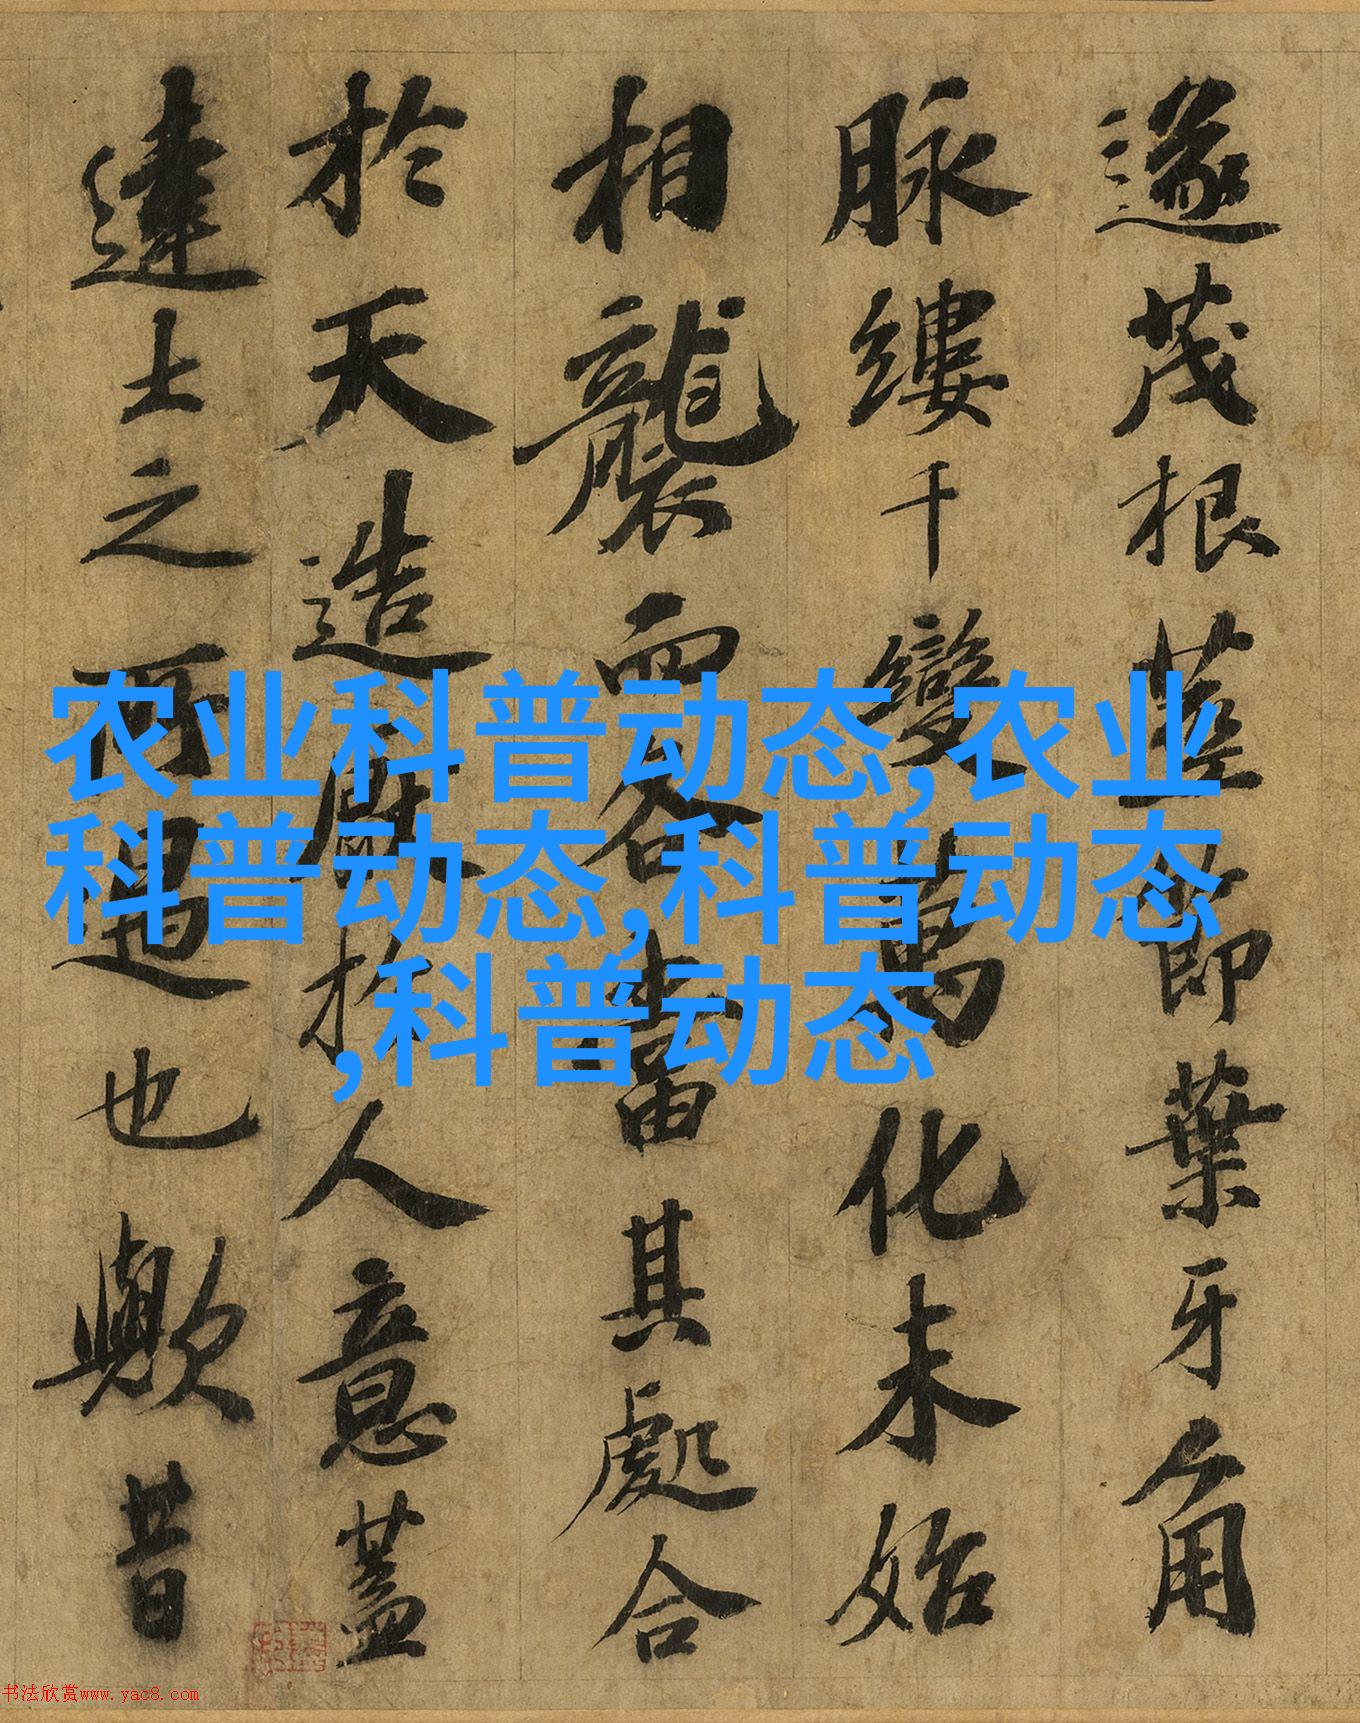 遂茂根莖節葉牙角
脉縷千變萬化未始
相襲而各當其處合
於天造厭於人意蓋
達士之所遇也歟昔
农业科普动态,农业
科普动态,科普动态
,科普动态
书法欣赏www.yac8.com